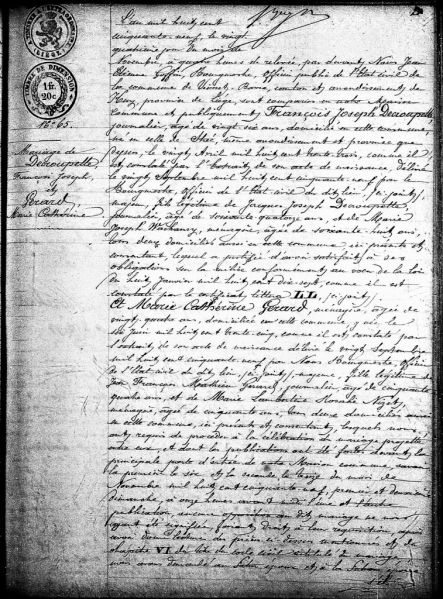 L'an mil huit cent
cinquante neuf, le vingt
quatrième jour du mois de
Novembre, à quatre heures de relevée, par devant Nous Jean
officier public de l'Etat civil de
la commune de
province de Liège, sont comparus en notre Maison
Commune et publiquement François Joseph Decoupelle
journalier, âgé de vingt six ans, domicilié en cette commune,
né en celle de même arrondissement et province que
mil huit cent trente trois, comme il
est constaté par l'extrait de son acte de naissance, délivré
le vingt Septembre mil huit cent cinquante neuf par le
Bourgmestre, officier de l'Etat civil du dit lieu, ci joint,
majeur, fils légitime de Jacques Joseph Decoupelle
journalier, âgé de soixante quatorze ans, et de Marie
Joseph ménagère, âgée de soixante huit ans,
tous deux domiciliés aussi en cette commune ici présents et
consentant, lequel a justifié d'avoir satisfait à ses
obligations sur la milice conformément au vœu de la loi
du huit Janvier mil huit cent dix sept, comme il est
constaté par le certificat littera LL, ci joint,
Et Marie Catherine Gérard, ménagère, âgée de
vingt quatre ans, domiciliée en cette commune, y née le
six Juin mil huit cent trente cinq, comme il est constaté par
l'extrait de son acte de naissance délivré le vingt Septembre
mil huit cent cinquante neuf par Nous Bourgmestre, officier
de l'Etat civil du dit lieu, ci joint, majeure, fille légitime de
Jean François Mathieu Gérard, journalier âgé de cinquante
quatre ans, et de Marie Lambertine
ménagère, âgée de cinquante ans, tous deux domiciliés aussi
en cette commune, ici présents et consentant, lesquels nous
ont requis de procéder à la célébration du mariage projetté
entre eux, et dont les publications ont été faites devant la
principale porte d'entrée de notre Maison commune, savoir
la première le six et la seconde le treize du mois de
Novembre mil huit cent cinquante neuf, premier et deuxième
Dimanche, à onze heures avant midi
publication, aucune opposition au dit mariage ne nous
ayant été signifiée, faisant droit à leur réquisition, après
avoir donné lecture des pièces ci dessus mentionnées et du
chapitre VI du titre du code civil intitulé du mariage,
nous avons demandé au futur époux et à la future épouse
1 fr.
20c
N° 65.
Mariage de
Decoupelle
François Joseph,
et
Gérard,
Marie Catherine